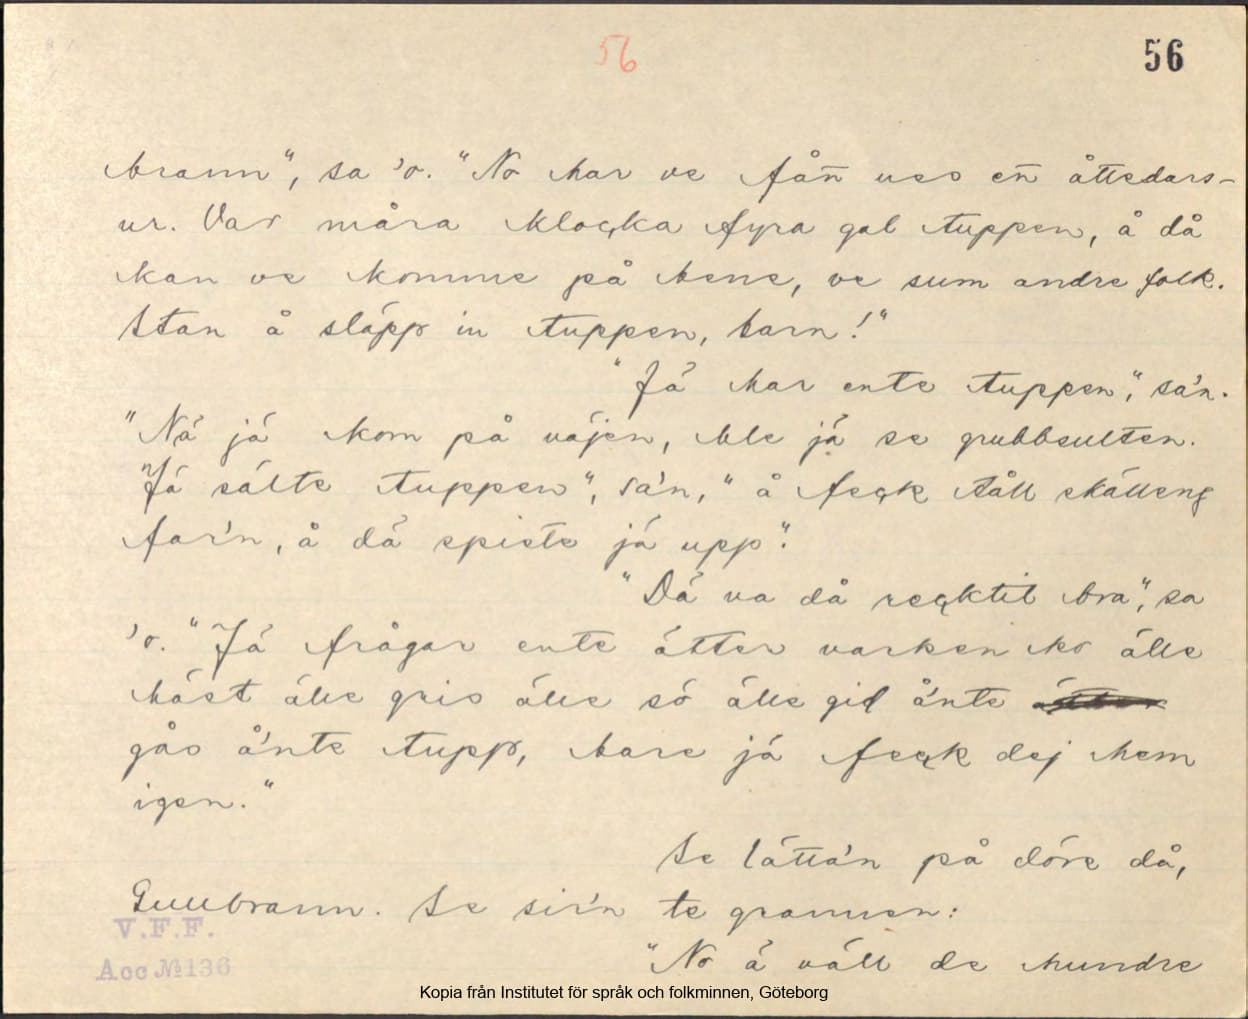 56
56
brann", sa 'o. "No har ve fån̄ uss en̄ åttedars-
ur. Var måra klocka fyra gal tuppen, å då
kan ve komme på bene, ve sum andre folk.
Stan å släpp in tuppen, barn!"
"Já har ente tuppen", sa'n.
"Ná já kom på väjen, ble já se grubbsulten.
"Já sálte tuppen", sa'n, "å feck tåll skälleng
far'n, å dá spiste já upp".
"Dá va då recktit bra", sa
'o. "Já frågar ente átter varken ko álle
häst álle gris álle só álle gid ånte
gås ånte tupp, bare já feck dej hem
igen."
Se lätta'n på döre då,
Gullbrann. Se sir'n te grannen:
"No á väll de hundre
V.F.F.
Acc № 136
Kopia från Institutet för språk och folkminnen, Göteborg